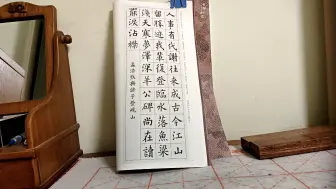 人事有代謝往來成古今江山
留勝迹我輩復登臨水落魚梁
淺天寒夢澤深羊公碑尚在讀
罷淚沾襟
孟浩然與諸子登峴山